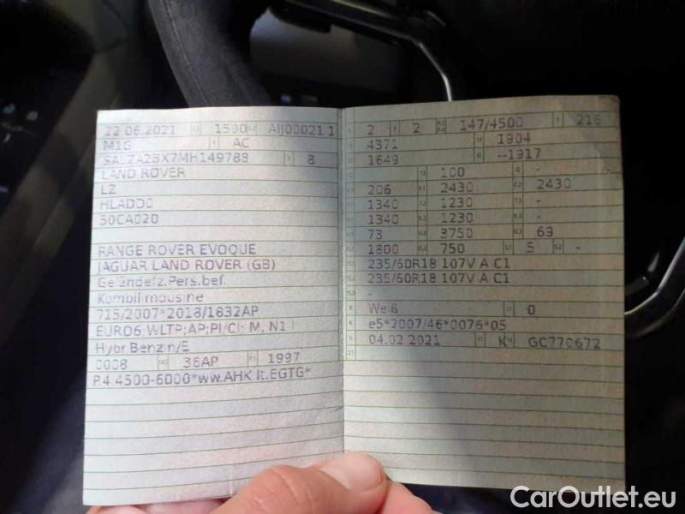 22.06.2021 1500 AIJ00021 1
M1G AC
SALZA2BX7MH149789 8
LAND ROVER
LZ
HLADD0
30CA020
RANGE ROVER EVOQUE
JAGUAR LAND ROVER (GB)
Geländefz.Pers.bef.
Kombilimousine
715/2007*2018/1832AP
EURO6 WLTP;AP;PI/CI: M, N1 I
Hybr.Benzin/E
0008 36AP 1997
P.4 4500-6000*ww.AHK lt.EGTG*
2 2 147/4500 216
4371 1904
1649 --1917
100 -
206 2430 2430
1340 1230 -
1340 1230 -
73 3750 69
1800 750 5 -
235/60R18 107V A C1
235/60R18 107V A C1
-
Weiß 0
e5*2007/46*0076*05
04.02.2021 K GC770672
CarOutlet.eu